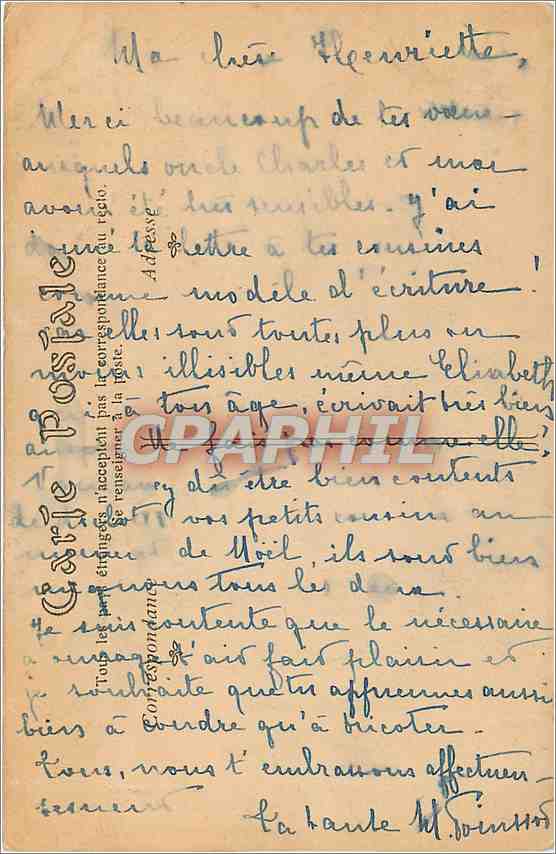 Ma chère Henriette,
Merci beaucoup de tes vœux
auxquels oncle Charles et moi
avons été très sensibles. J'ai
donné ta lettre à tes cousines
comme modèle d'écriture !
elles sont toutes plus ou
moins illisibles même Elisabeth
qui à ton âge, écrivait très bien
Ne fais pas comme elle !
Vous avez dû être bien contents
de vos petits cousins au
moment de Noël, ils sont bien
mignons tous les deux.
Je suis contente que le nécessaire
à ouvrage t'ait fait plaisir et
je souhaite que tu apprennes aussi
bien à coudre qu'à tricoter.
Tous, nous t'embrassons affectueu-
sement
Ta tante M. Poinssot
Carte postale
Tous les pays étrangers n'acceptent pas la correspondance au recto.
Se renseigner à la poste.
Correspondance
Adresse
CPAPHIL